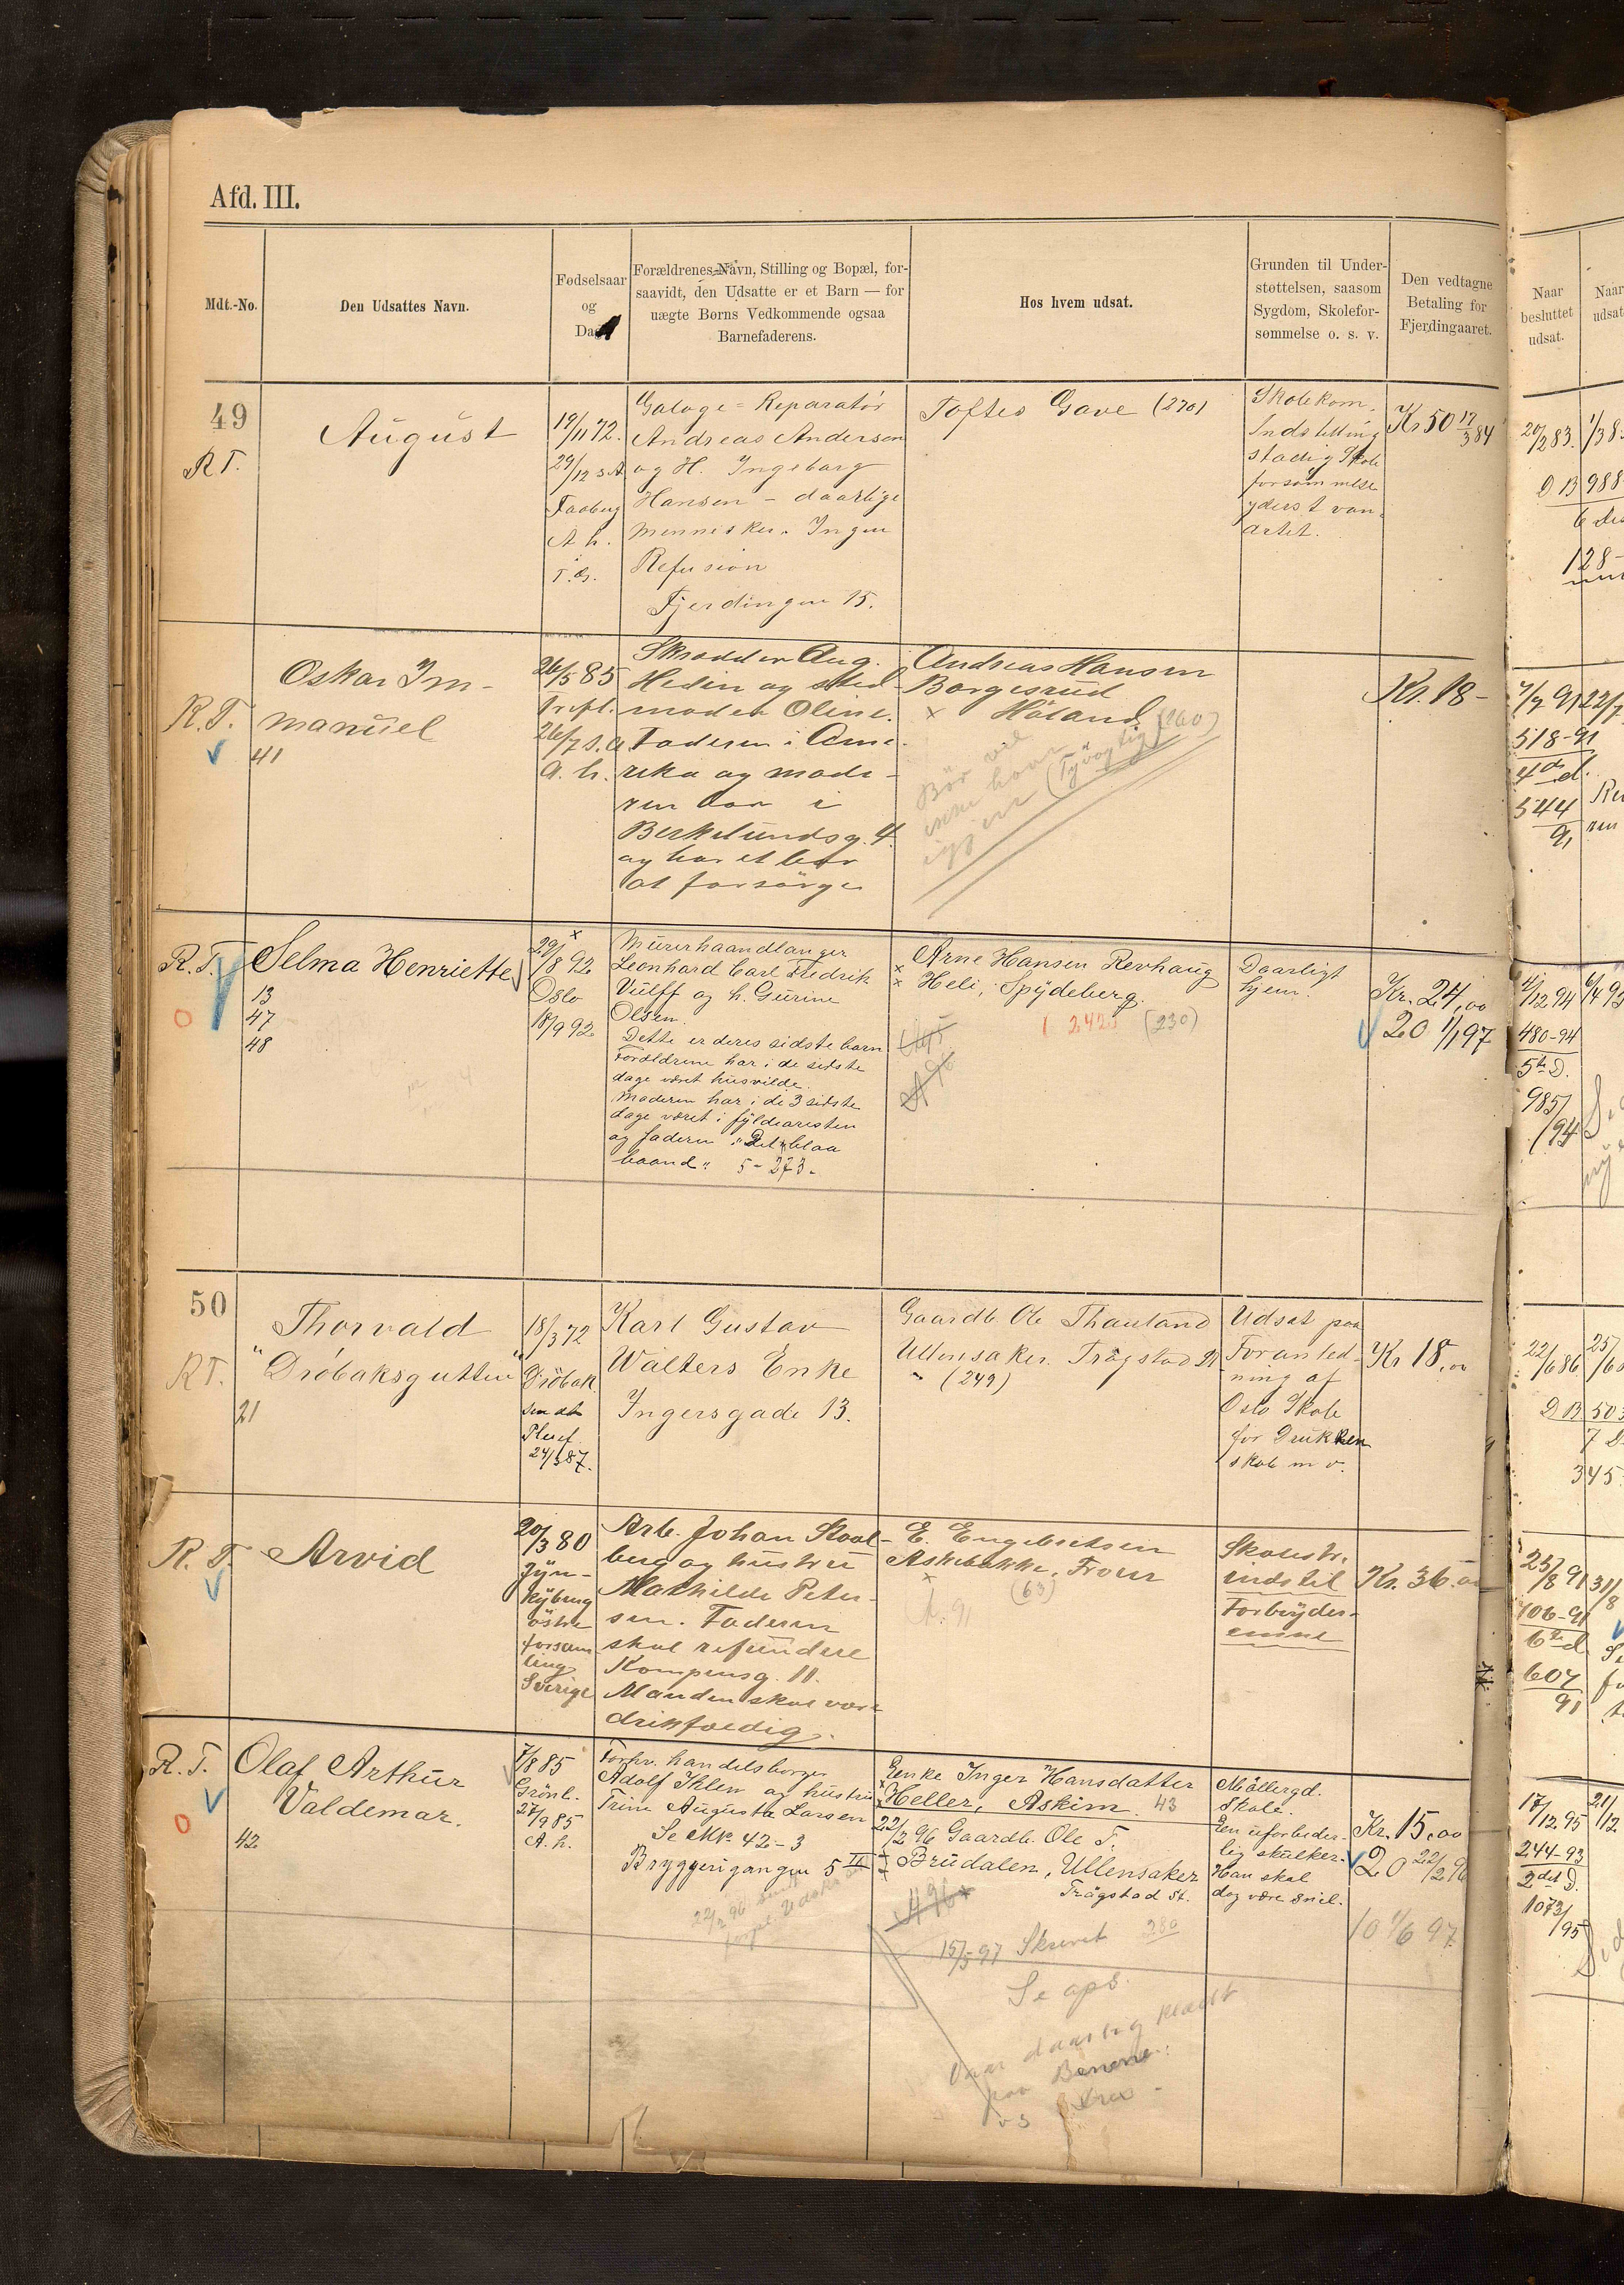 Afd. III.
Mdt.-No.
Den Udsattes Navn.
Fødselsaar
og
Forældrenes Navn, Stilling og Bopæl, for-
saavidt, den Udsatte er et Barn — for
uægte Børns Vedkommende ogsaa
Barnefaderens.
Hos hvem udsat.
Grunden til Under-
støttelsen, saasom
Sygdom, Skolefor-
sømmelse o. s. v.
Den vedtagne
Betaling for
Fjerdingaaret.
Naar
besluttet
udsat.
Naar
udsat
49
R T.
August
19/11 72.
29/12 s A
Faaberg
A h.
Galoge = Reparatör
Andreas Andersen
og H. Ingeborg
Hansen - daarlige
mennesker. Ingen
Refusion
Fjerdingen 15.
Toftes Gave (270)
Skolekom.
Indstilling
stadig Skole
forsømmelse
yderst van-
artet.
Kr 50 17/3 84
20/2 83.
D B 988
128-
R. T.
Oskar Im-
manuel
41
26/5 85
Trefl.
26/7 s. A.
A. h.
Skrædder Aug.
Hedin og sted-
moder Oline.
Faderen i Ame-
rika og mode-
ren bor i
Berkelundsg. 4.
og har et barn
at forsörge
Andreas Hansen
Borgesrud
x Höland (260)
Bör vel
ikke have
(Tyvagtig)
Kr. 18-
7/7 91
518-91
4de d.
544
91
R. T.
Selma Henriette
13
47
48
29/8 92
Oslo
18/9 92
Murerhaandlanger
Leonhard Carl Fredrik
Vulff og h. Gurine
Olsen.
Dette er deres sidste barn
Forældrene har i de sidste
dage været husvilde.
Moderen har i de 3 sidste
dage været i fyldearesten
og faderen i "Det blaa
baand". 5 - 273 -
Arne Hansen Revhaug
Heli, Spydeberg.
242 (230)
Daarligt
hjem.
Kr. 24,00
20 1/1 97
4/12 94
480-94
5te D.
985/
/94
50
R T.
Thorvald
"Dröbaksgutten"
21
18/3 72
Dröbak
24/3 87.
Karl Gustav
Walters Enke
Ingersgade 13.
Gaardb. Ole Thauland
Ullensaker. Trögstad St
" (249)
Udsat paa
Foranled-
ning af
Oslo Skole
for Drukken
skab m v.
Kr 18,00
22/6 86
D B 503
345
R. T.
Arvid
20/3 80
Jyn-
kyberg
östre
forsam
ling
Sverige
Arb. Johan Staal-
berg og hustru
Mathilde Peter-
sen. Faderen
skal refundere
Kompensg. 11.
Manden skal være
drikfældig.
E. Engebretsen
Askebakke, Froen
x (63)
Skolestr.
indstil
Forbryder-
emne
Kr. 36.00
25/8 91
106-91
6te d.
607
91
R. T.
Olaf Arthur
Valdemar.
42
7/8 85
Grönl.
27/9 85
A. h.
Forhv. handelsborger
Adolf Ihlen og hustru
Trine Augusta Larsen
Se Mk. 42-3
Bryggerigangen 5 II
Enke Inger Hansdatter
Heller, Askim. 43
22/2 96 Gaardb. Ole T.
Brudalen, Ullensaker
Trögstad St.
15/5 97 Skrevet 280
Se ops.
Var daarlig klædt
paa Benene.
Möllergd.
Skole.
En uforbeder-
lig skulker.
Han skal
dog være snil.
Kr. 15,00
20 22/2 96
10 1/6 97
17/12 95
244-93
2det D.
1073/
/95